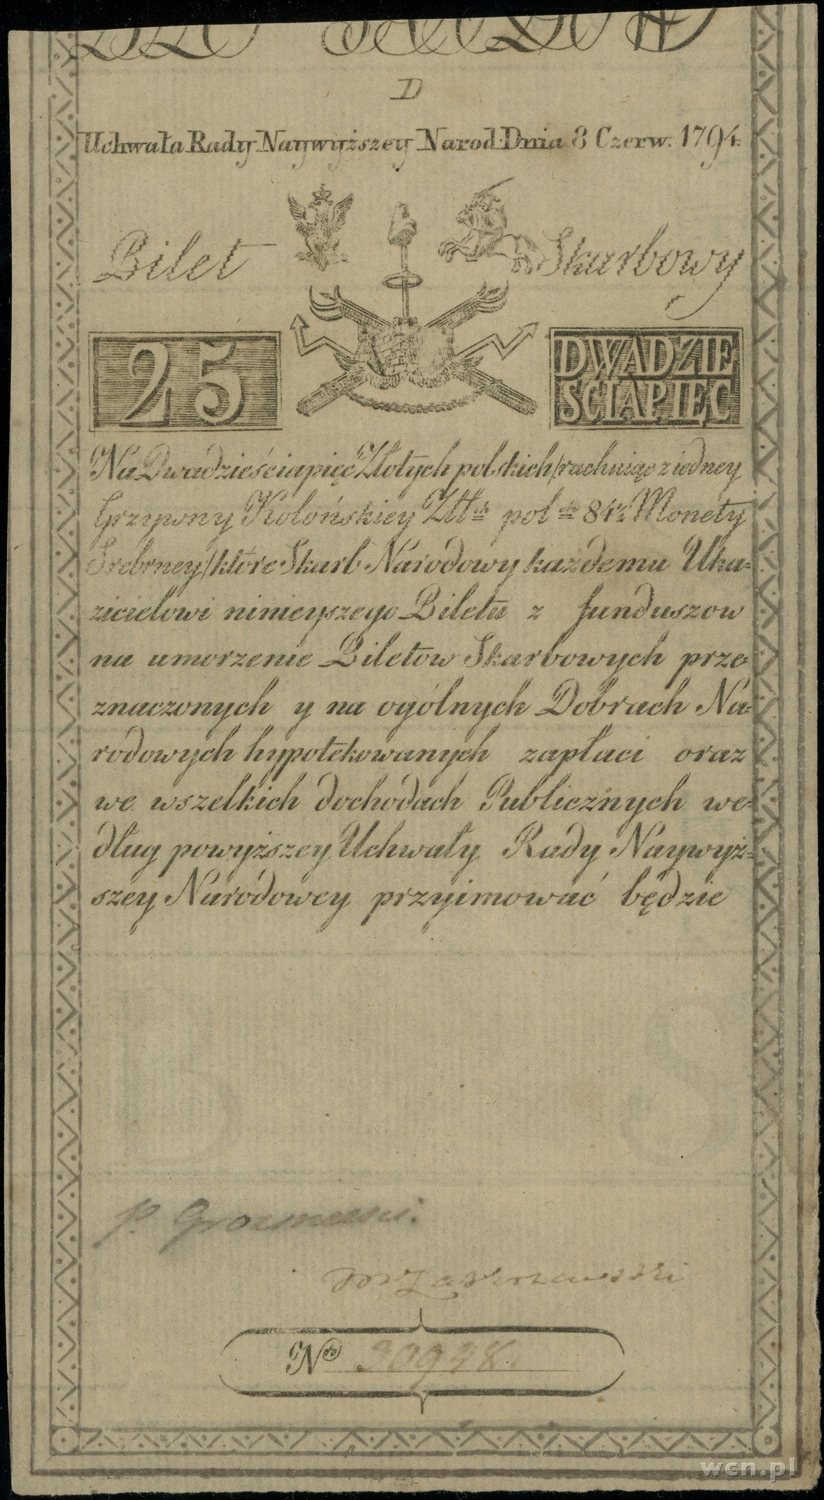 D
Uchwała Rady Naywyższey Narod: Dnia 8 Czerw: 1794.
Bilet Skarbowy
25 DWADZIE
ŚCIAPIĘC
Na Dwadzieściapięć Złotych polskich /rachuiąc z iedney
Grzywny Kolońskiey Złł:ch pol:ch 84½ Monety
Srebrney/ które Skarb Narodowy każdemu Uka-
zicielowi ninieyszego Biletu z funduszow
na umorzenie Biletow Skarbowych prze-
znaczonych y na ogólnych Dobrach Na-
rodowych hypotekowanych zapłaci oraz
we wszelkich dochodach Publicznych we-
dług powyższey Uchwały Rady Naywyż-
szey Narodowey przyimować będzie
B S
P. Grozmani.
M Zakrzewski
No 30948.
wcn.pl